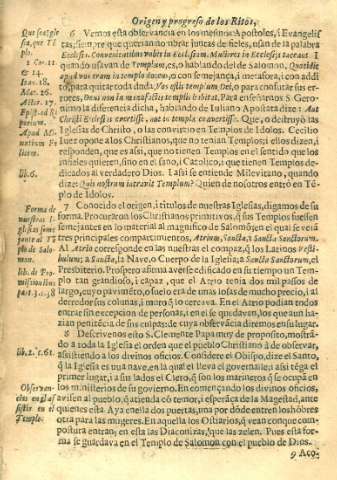 Origen y progreso de los Ritos,
6 Vemos esta observancia en los mesmos Apostoles, i Evangelis-
tas, siempre que querian nombrar juntas de fieles, usan de la palabra
Ecclesia. Convenientibus vobis in Ecclesiam. Mulieres in Ecclesijs taceant. I
quando usavan de Templum, es, o hablando del de Salomon, Quotidie
apud vos eram in templo docens, o con semejança, i metafora, i con aditto,
para quitar toda duda, Vos estis templum Dei, o para confutar sus er-
rores, Deus non in manufactis templis habitat. Para enseñarnos S. Gero-
nimo la diferencia dicha, hablando de Iuliano Apostata dize: Aut
Christi Ecclesias evertisse, aut in templa convertisse. Que, o destruyò las
Iglesias de Christo, o las convirtio en Templos de Idolos. Cecilio
luc opone a los Christianos, que no tenian Templos; i ellos dizen, i
responden, que es assi, que no tienen Templos en el sentido que los
infieles quieren, sino en el sano, i Catolico, i que tienen Templos de-
dicados al verdadero Dios. I assi se entiende Milevitano, quando
dize: Quis nostrum intravit Templum? Quien de nosotros entrò en Tē-
plo de Idolos.
7 Conocido el origen, i titulos de nuestras Iglesias, digamos de su
forma. Procuraron los Christianos primitivos, q̃ sus Templos fuessen
semejantes en lo material al magnifico de Salomõ; en el qual se veiã
tres principales compartimientos, Atrium, Sancta, i Sancta Sanctorum.
Al Atrio corresponde en las nuestras el compas, q̃ los Latinos Vesti-
bulum; a Sancta, la Nave, o Cuerpo de la Iglesia; a Sancta Sanctorum, el
Presbiterio. Prospero afirma aver se edificado en su tiempo un Tem-
plo tan grandioso, i capaz, que el Atrio tenia dos mil passos de
largo, cuyo pavimẽto, o suelo era de unas losas de mucho precio, i al
derredor sus colunas, i muro q̃ lo cercava. En el Atrio podian todos
entrar sin excepcion de personas, i en el se quedavan, los que aun ha-
zian penitẽcia de sus culpas: de cuya observancia diremos en su lugar.
8 Descrivenos esto S. Clemente Papa muy de proposito, mostrã-
do a toda la Iglesia el orden que el pueblo Christiano à de observar,
assistiendo a los divinos oficios. Considere el Obispo, dize el Santo,
q̃ la Iglesia es una nave, en la qual el lleva el governalle; i assi tẽga el
primer lugar, i a su lados el Clero, q̃ son los marineros q̃ se ocupã en
los ministerios de su govierno. En començando los divinos oficios,
avisen al pueblo, q̃ atienda cõ temor, i esperãça de la Magestad, ante
quien esta. Aya en ella dos puertas, una por dõde entren los hõbres,
otra para las mugeres. En aquella los Ostiarios, q̃ vean con que com-
postura entran; en esta las Diaconizas, que las zelen. Pues esta for-
ma se guardava en el Templo de Salomon con el pueblo de Dios.
9 Aco-
Que sea Igle-
sia, que Tẽ-
plo.
1 Cor. 11
& 14.
Ioan. 18.
Mat. 26.
Actor. 17.
lib. 6.
Forma de
nuestras I-
glesias seme-
jante al Tẽ-
plo de Salo-
mon.
lib. 2. c. 61.
Templo.